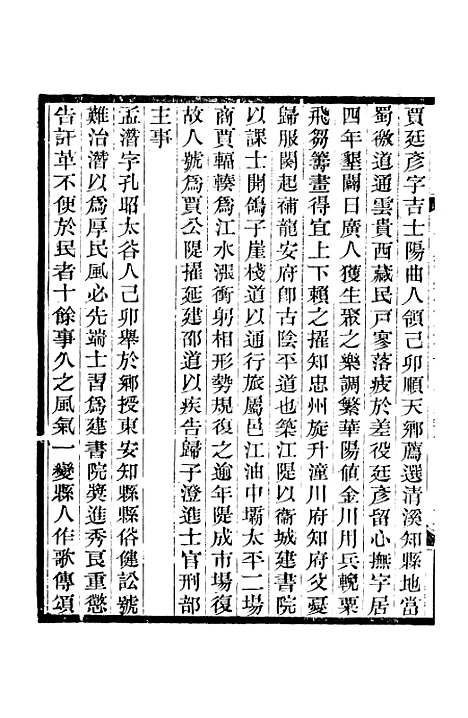 賈廷彥字吉士陽曲人領己卯順天鄉薦選清溪知縣地當
蜀徼道通雲貴西藏民戸寥落疲於差役廷彥留心撫字居
四年墾闢日廣人獲生聚之樂調繁華陽値金川用兵輓粟
飛芻籌畫得宜上下賴之擢知忠州旋升潼川府知府父憂
歸服闋起補龍安府卽古陰平道也築江隄以衞城建書院
以課士開鴿子崖棧道以通行旅屬邑江油中壩太平二場
商賈輻輳爲江水漲衝躬相形勢規復之逾年隄成市場復
故人號爲賈公隄擢延建邵道以疾告歸子澄進士官刑部
主事
孟潛字孔昭太谷人己卯舉於鄉授東安知縣縣俗健訟號
難治潛以爲厚民風必先端士習爲建書院奬進秀良重懲
告訐革不便於民者十餘事久之風氣一變縣人作歌傳頌